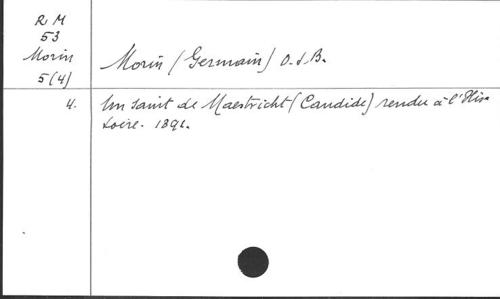 R M
53
Morin
5(4)
Morin (Germain) O.S.B.
4. Un saint de Maestricht (Candide) rendu à l'His-
toire. 1891.